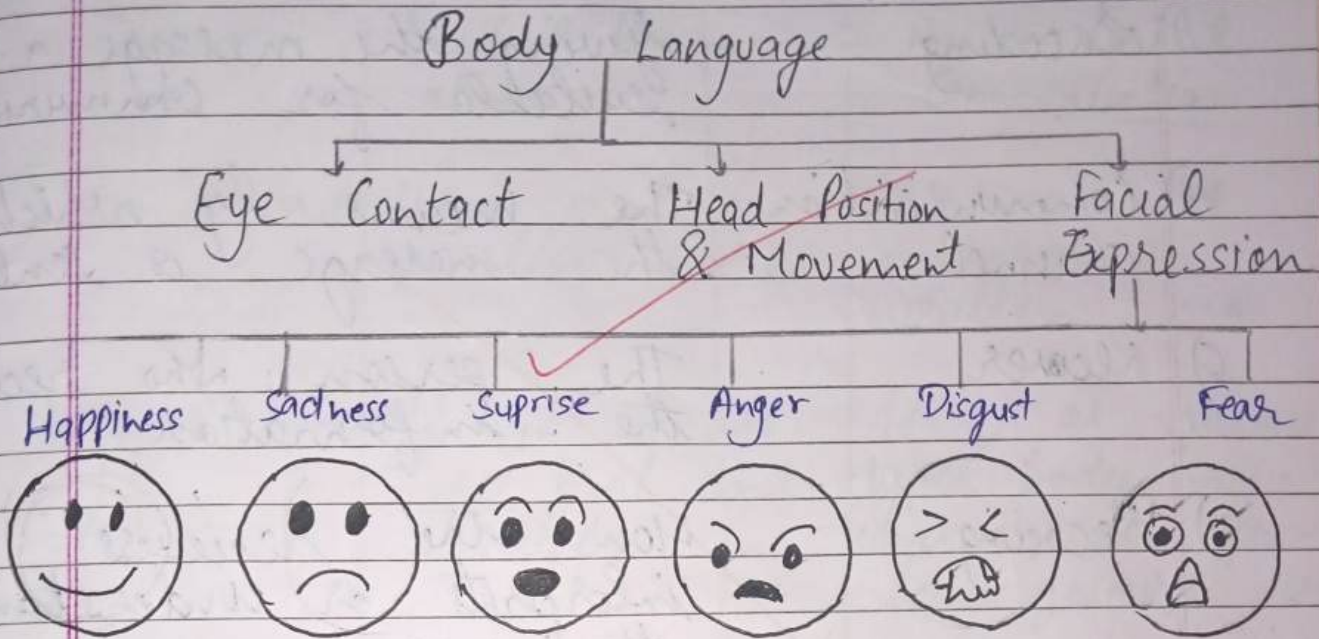 Body Language
Eye Contact Head Position Facial
& Movement . Expression
Happiness Sadness Suprise Anger Disgust Fear